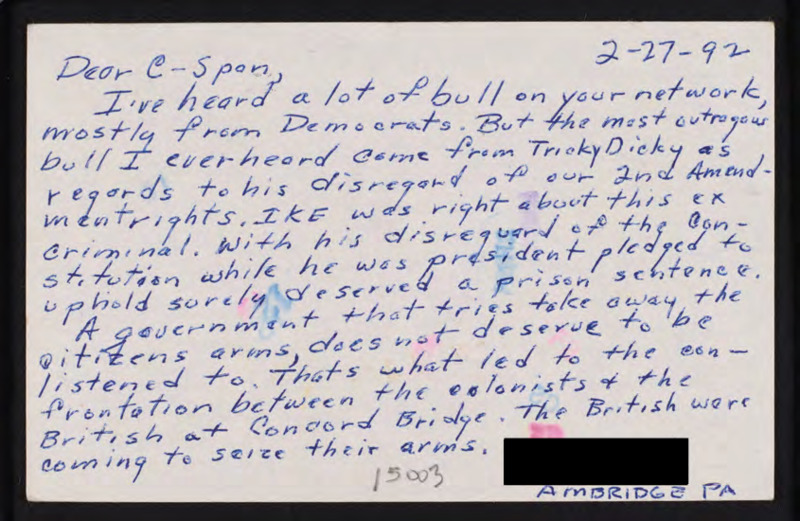 2-27-92
Dear C-Span,
I've heard a lot of bull on your network,
mostly from Democrats. But the most outragous
bull I everheard came from TrickyDicky as
regards to his disregard of our 2nd Amend-
mentrights. IKE was right about this ex
criminal. With his disreguard of the Con-
stitution while he was president pledged to
uphold surely deserved a prison sentence.
A government that tries take away the
citizens arms, does not deserve to be
listened to. Thats what led to the con-
frontation between the colonists & the
British at Concord Bridge. The British were
coming to seize their arms.
15003
AMBRIDGE PA